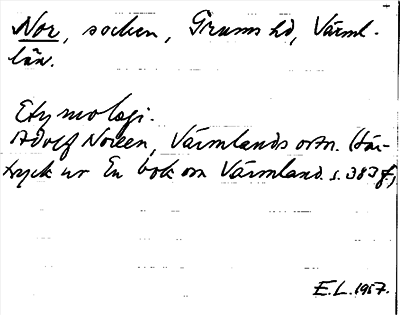 Nor, socken, Grums hd, Värml.
län.
Etymologi.
Adolf Noreen, Värmlands ortn. (Sär-
tryck ur En bok om Värmland. s. 383 f.)
E.L. 1957.